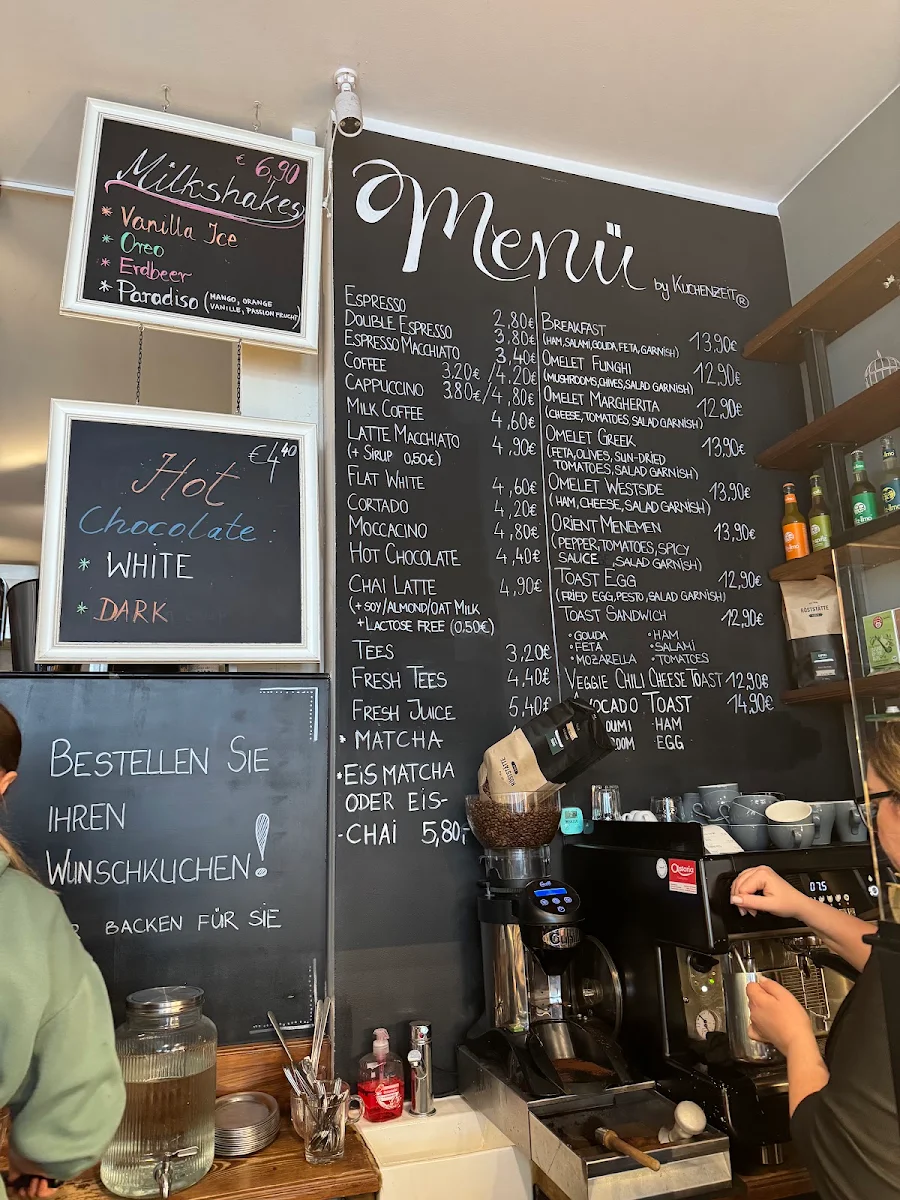 € 6,90
Milkshakes
* Vanilla Ice
* Oreo
* Erdbeer
* Paradiso (MANGO, ORANGE
VANILLE, PASSION FRUCHT)
€4,40
Hot
Chocolate
* WHITE
* DARK
BESTELLEN SIE
IHREN
WUNSCHKUCHEN!
BACKEN FÜR SIE
Menü
by KUCHENZEIT®
ESPRESSO 2,80€
DOUBLE ESPRESSO 3,80€
ESPRESSO MACCHIATO 3,40€
COFFEE 3.20€ /4,20€
CAPPUCINO 3.80€/4,80€
MILK COFFEE 4,60€
LATTE MACCHIATO 4,90€
(+ SIRUP 0,50€)
FLAT WHITE 4,60€
CORTADO 4,20€
MOCCACINO 4,80€
HOT CHOCOLATE 4,40€
CHAI LATTE 4,90€
(+SOY/ALMOND/OAT MILK
+LACTOSE FREE (0,50€)
TEES 3,20€
FRESH TEES 4,40€
FRESH JUICE 5,40€
• MATCHA
• EIS MATCHA
ODER EIS-
-CHAI 5,80,-
BREAKFAST 13,90€
(HAM, SALAMI, GOUDA, FETA, GARNISH)
OMELET FUNGHI 12,90€
(MUSHROOMS, CHIVES, SALAD GARNISH)
OMELET MARGHERITA 12,90€
(CHEESE, TOMATOES, SALAD GARNISH)
OMELET GREEK 13,90€
(FETA, OLIVES, SUN-DRIED
TOMATOES, SALAD GARNISH)
OMELET WESTSIDE 13,90€
(HAM, CHEESE, SALAD GARNISH)
ORIENT MENEMEN 13,90€
(PEPPER, TOMATOES, SPICY
SAUCE , SALAD GARNISH)
TOAST EGG 12,90€
(FRIED EGG, PESTO, SALAD GARNISH)
TOAST SANDWICH 12,90€
• GOUDA • HAM
• FETA • SALAMI
• MOZARELLA • TOMATOES
VEGGIE CHILI CHEESE TOAST 12,90€
AVOCADO TOAST 14,90€
OUMI HAM
OOM EGG
RÖSTSTÄTTE
075